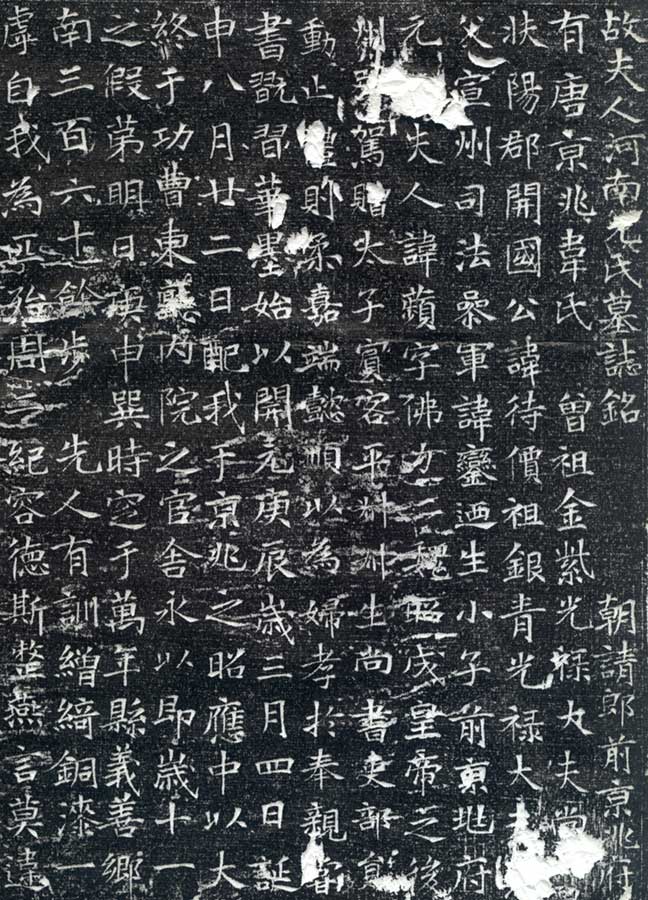 故夫人河南元氏墓誌銘 朝請郎前京兆府
有唐京兆韋氏 曾祖金紫光祿大夫尚
扶陽郡開國公諱待價祖銀青光祿大夫
父宣州司法叅軍諱鑾迺生小子前京兆府
元夫人諱蘋字佛力二魏昭成皇帝之後
州別駕贈太子賓客平叔叔生尚書吏部員
動止則柔嘉端懿順以為婦孝於奉親嘗
書翫習華墨始以開元庚辰歲三月四日誕
申八月廿二日配我于京兆之昭應中以大
終于功曹東廳內院之官舍永以即歲十一
之假第明日庚申巽時窆于萬年縣義善鄉
南三百六十餘步 先人有訓繒綺銅漆一
虖自我為匹殆周一紀容德斯整燕言莫違